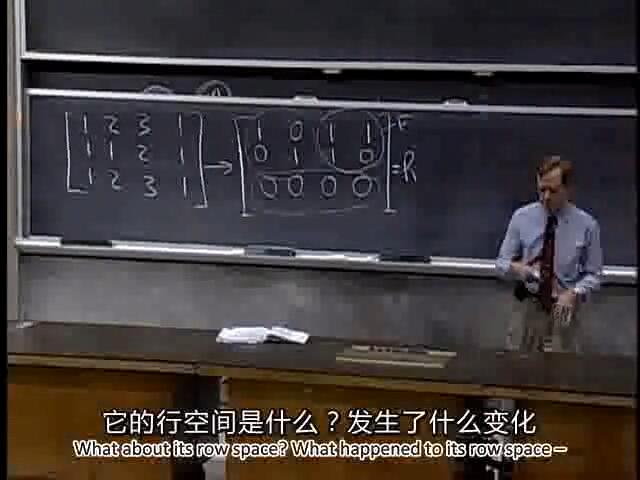 1 2 3 1 1 0 1 1 F
1 1 2 1 → 0 1 1 0 = R
1 2 3 1 0 0 0 0
它的行空间是什么？发生了什么变化
What about its row space? What happened to its row space –